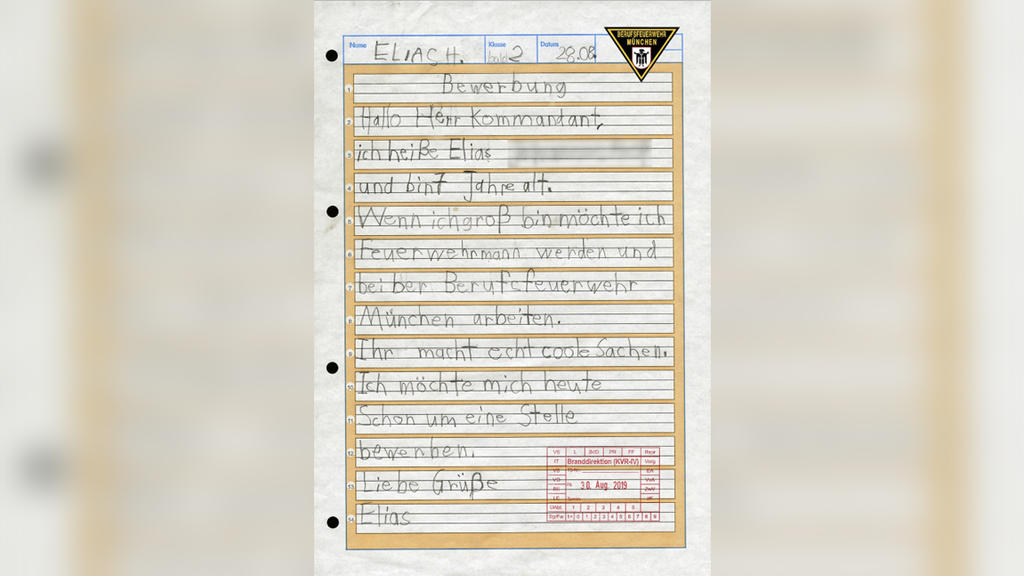 Name ELIAS H. Klasse bald 2 Datum 28.08.
BERUFSFEUERWEHR
MÜNCHEN
1 Bewerbung
2 Hallo Herr Kommandant,
3 ich heiße Elias
4 und bin 7 Jahre alt.
5 Wenn ich groß bin möchte ich
6 Feuerwehrmann werden und
7 bei ber Berufsfeuerwehr
8 München arbeiten.
9 Ihr macht echt coole Sachen.
10 Ich möchte mich heute
11 Schon um eine Stelle
12 bewerben.
13 Liebe Grüße
14 Elias
Branddirektion (KVR-IV)
30. Aug. 2019
1 2 3 4 5
1 2 3 4 5 6 7 8 9